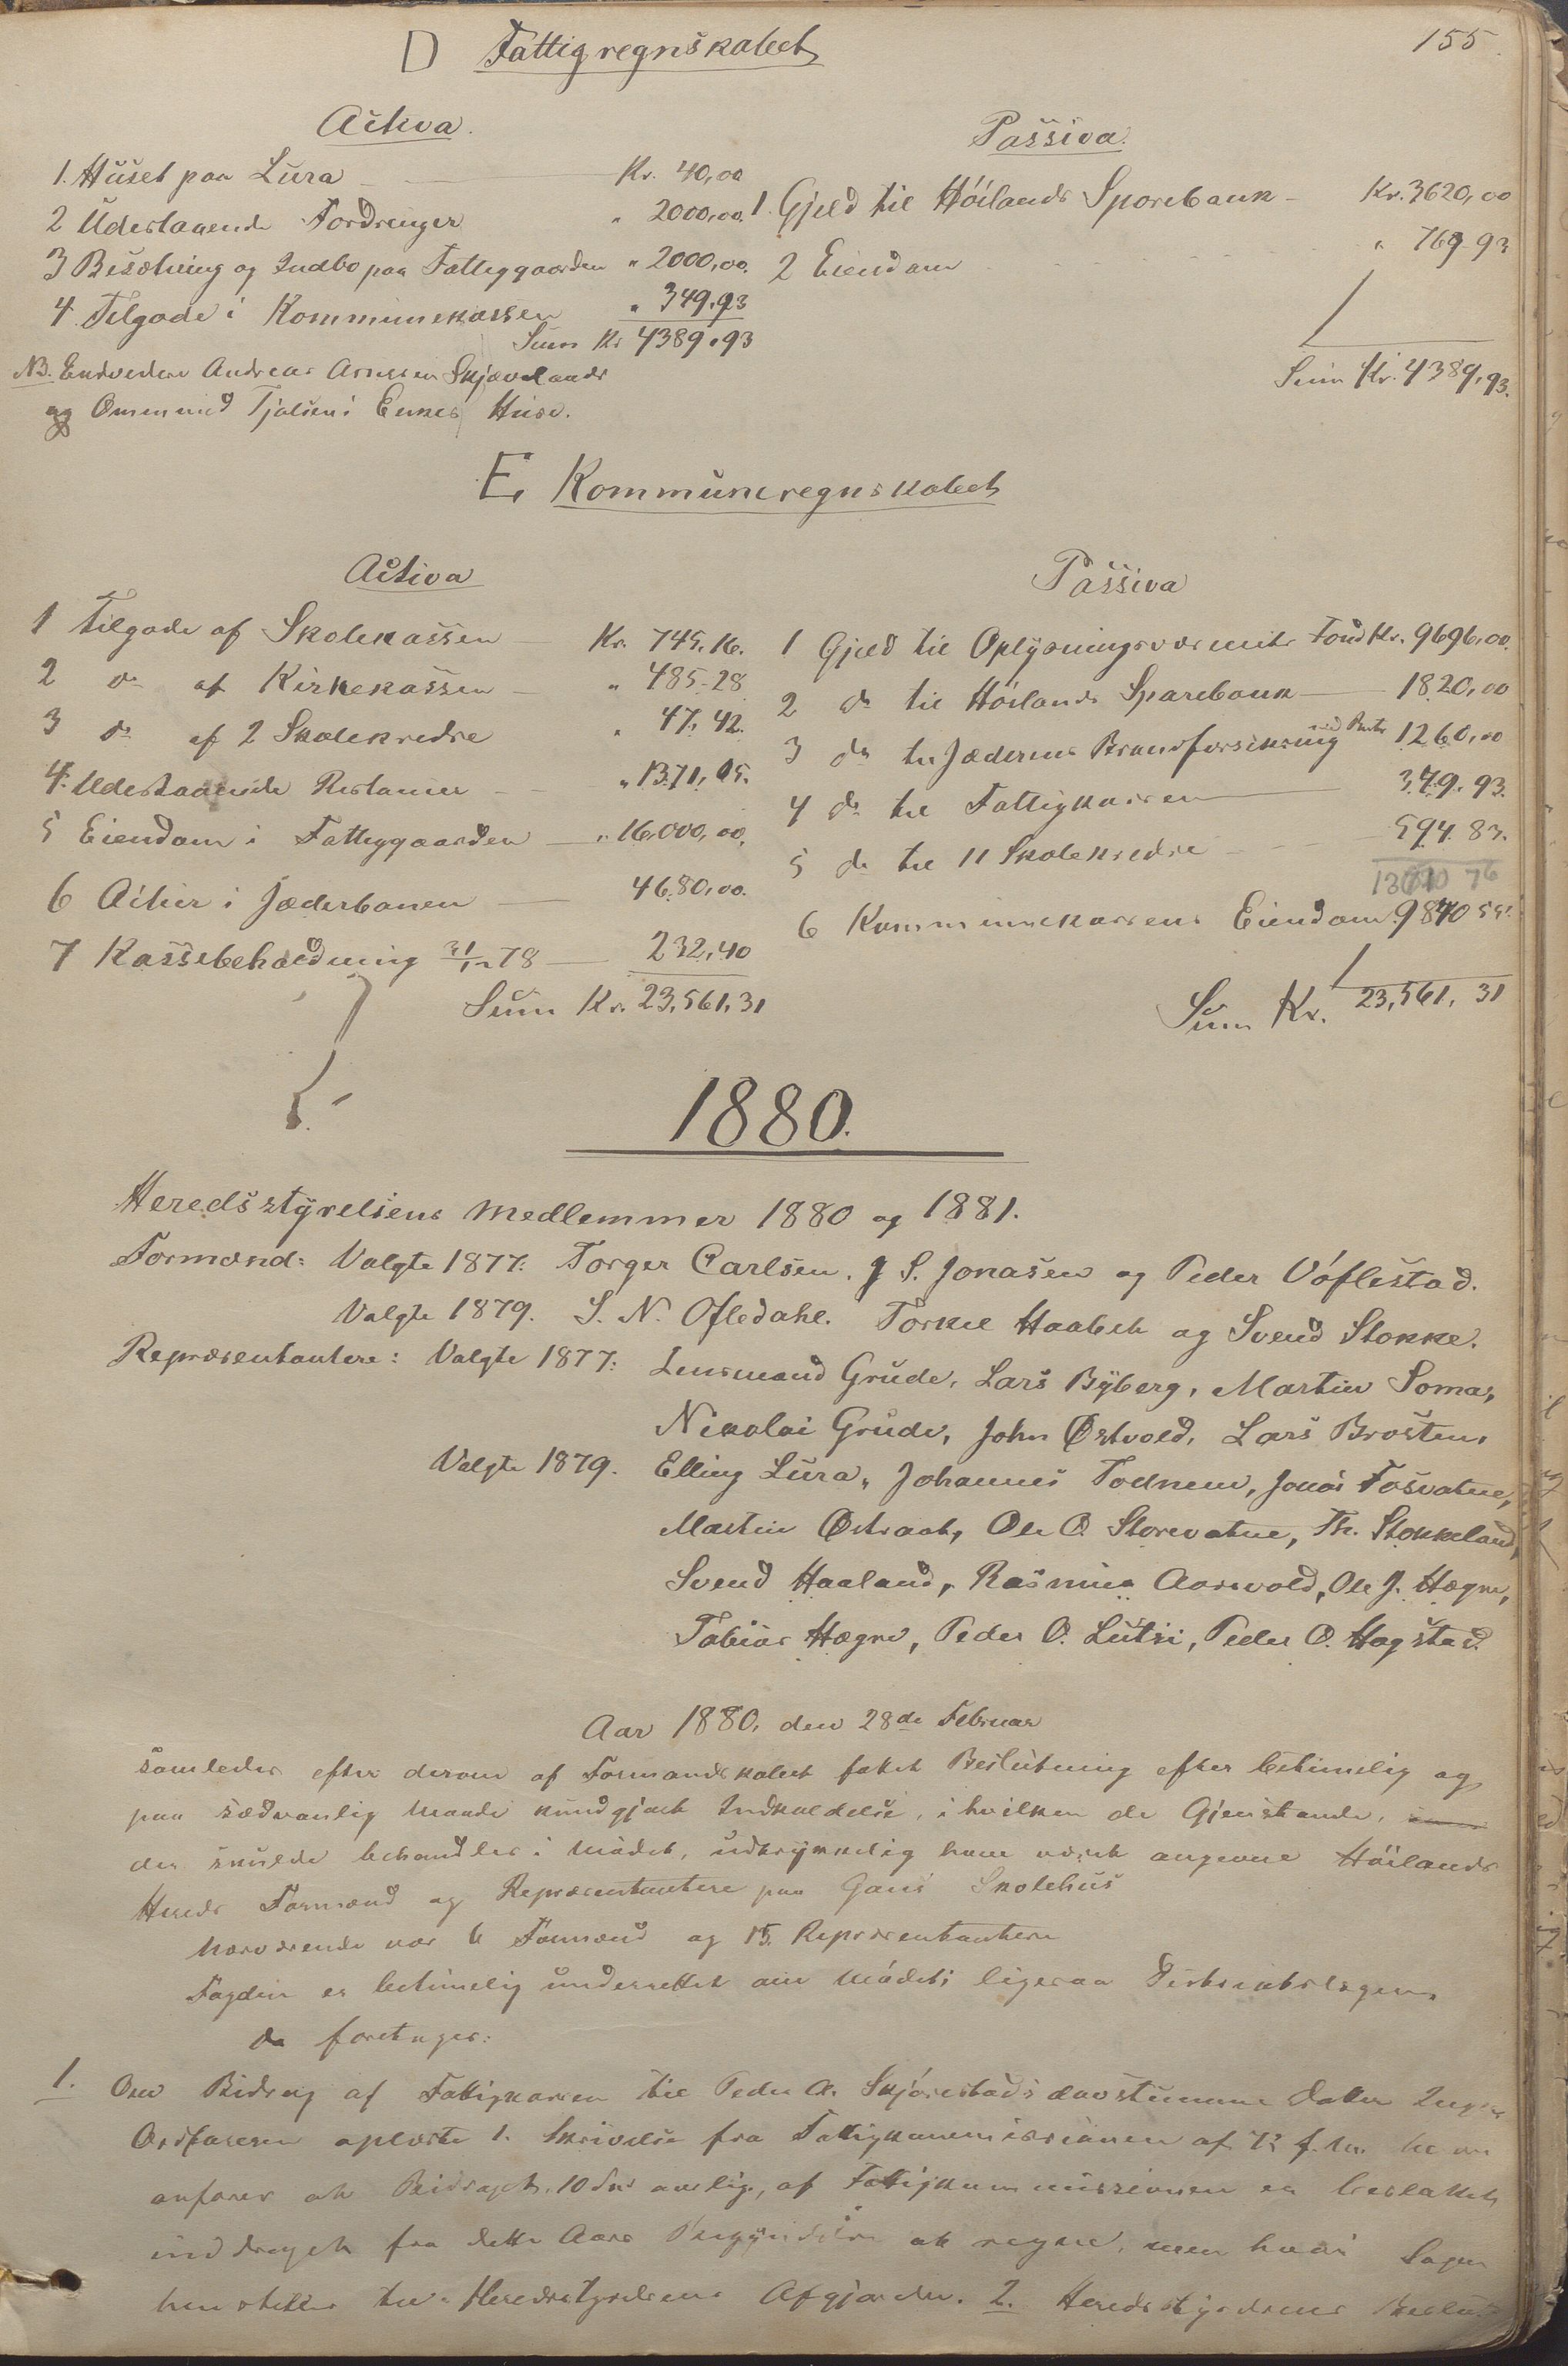 155.
D Fattigregnskabet
Activa.
1. Huset paa Lura Kr. 40,00
2 Udestaaende Fordringer " 2000,00.
3 Besætning og Indbo paa Fattiggaarden " 2000,00.
4. Tilgode i Kommunekassen " 349,93
Sum Kr 4389,93
NB. Endvidere Andreas Arnesen Skjævelands
og Ommund Tjølsen's Enkes Huse.
Passiva.
1. Gjeld til Høilands Sparebank - Kr. 3620,00
2 Eiendom " 769 93
Sum Kr. 4389,93.
E, Kommuneregnskabet
Activa
1 Tilgode af Skolekassen Kr. 745.16.
2 do af Kirkekassen " 485-28
3 do af 2 Skolekredse " 47,42.
4. Udestaaende Restancer " 1371,05.
5 Eiendom i Fattiggaarden " 16,000,00.
6 Actier i Jæderbanen 4680,00.
7 Kassebeholdning 31/12 78 232,40
Sum Kr. 23,561,31
Passiva
1 Gjeld til Oplysningsvæsenets Fond Kr. 9696,00.
2 do til Høilands Sparebank 1820,00
3 do til Jæderens Brandforsikring med Renter 1260,00
4 do til Fattigkassen 349.93.
5 do til 11 Skolekredse 594.83.
76
6 Kommunekassens Eiendom 9840 55
Sum Kr. 23,561,31
1880.
Heredsstyrelsens Medlemmer 1880 og 1881.
Formænd: Valgte 1877: Torger Carlsen, J S. Jonasen og Peder Vøflestad.
Valgte 1879. S. N. Ofledahl. Torkel Haabeth og Svend Stokke.
Repræsentantere: Valgte 1877: Lensmand Grude, Lars Byberg, Martin Soma,
Nikolai Grude, John Østvold, Lars Brosten,
Valgte 1879. Elling Lura, Johannes Todnem, Jonas Fosvatne,
Martin Østraat, Ole O. Storevatne, Th. Stokkeland,
Svend Haaland, Rasmus Aarsvold, Ole J. Hægne,
Tobias Hægne, Peder O. Lutsi, Peder O. Hogstad.
Aar 1880, den 28de Februar
samledes efter derom af Formandskabet fattet Beslutning efter betimelig og
paa sædvanlig Maade kundgjort Indkaldelse, i hvilken de Gjenstande,
der skulde behandles i Mødet, udtrykkelig have været angivne Høilands
Hereds Formænd og Repræsentantere paa Gans Skolehus
Nærværende var 6 Formænd og 15 Repræsentantere
Fogden er betimelig underrettet om Mødet; ligesaa
da foretoges:
1. Om Bidrag af Fattigkassen til Peder A. Skjørestads døvstumme Datter
Ordføreren oplæste 1. Skrivelse fra Fattigkommissionen af
anfører at Bidraget, 10 aarlig, af Fattigkommissionen er besluttet
inddraget fra dette Aars Begyndelse at regne, men Sagen
henstilles til Heredsstyrelsens Afgjørelse. 2. Heredsstyrelsens